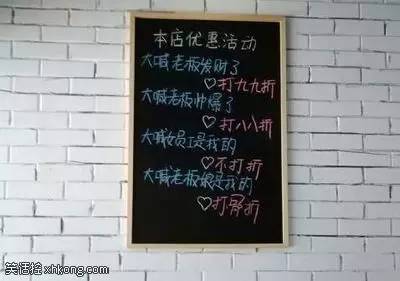 本店优惠活动
大喊老板发财了
♡打九九折
大喊老板帅爆了
♡打八八折
大喊女员工是我的
♡不打折
大喊老板娘是我的
♡打骨折
笑话搜 xhkong.com